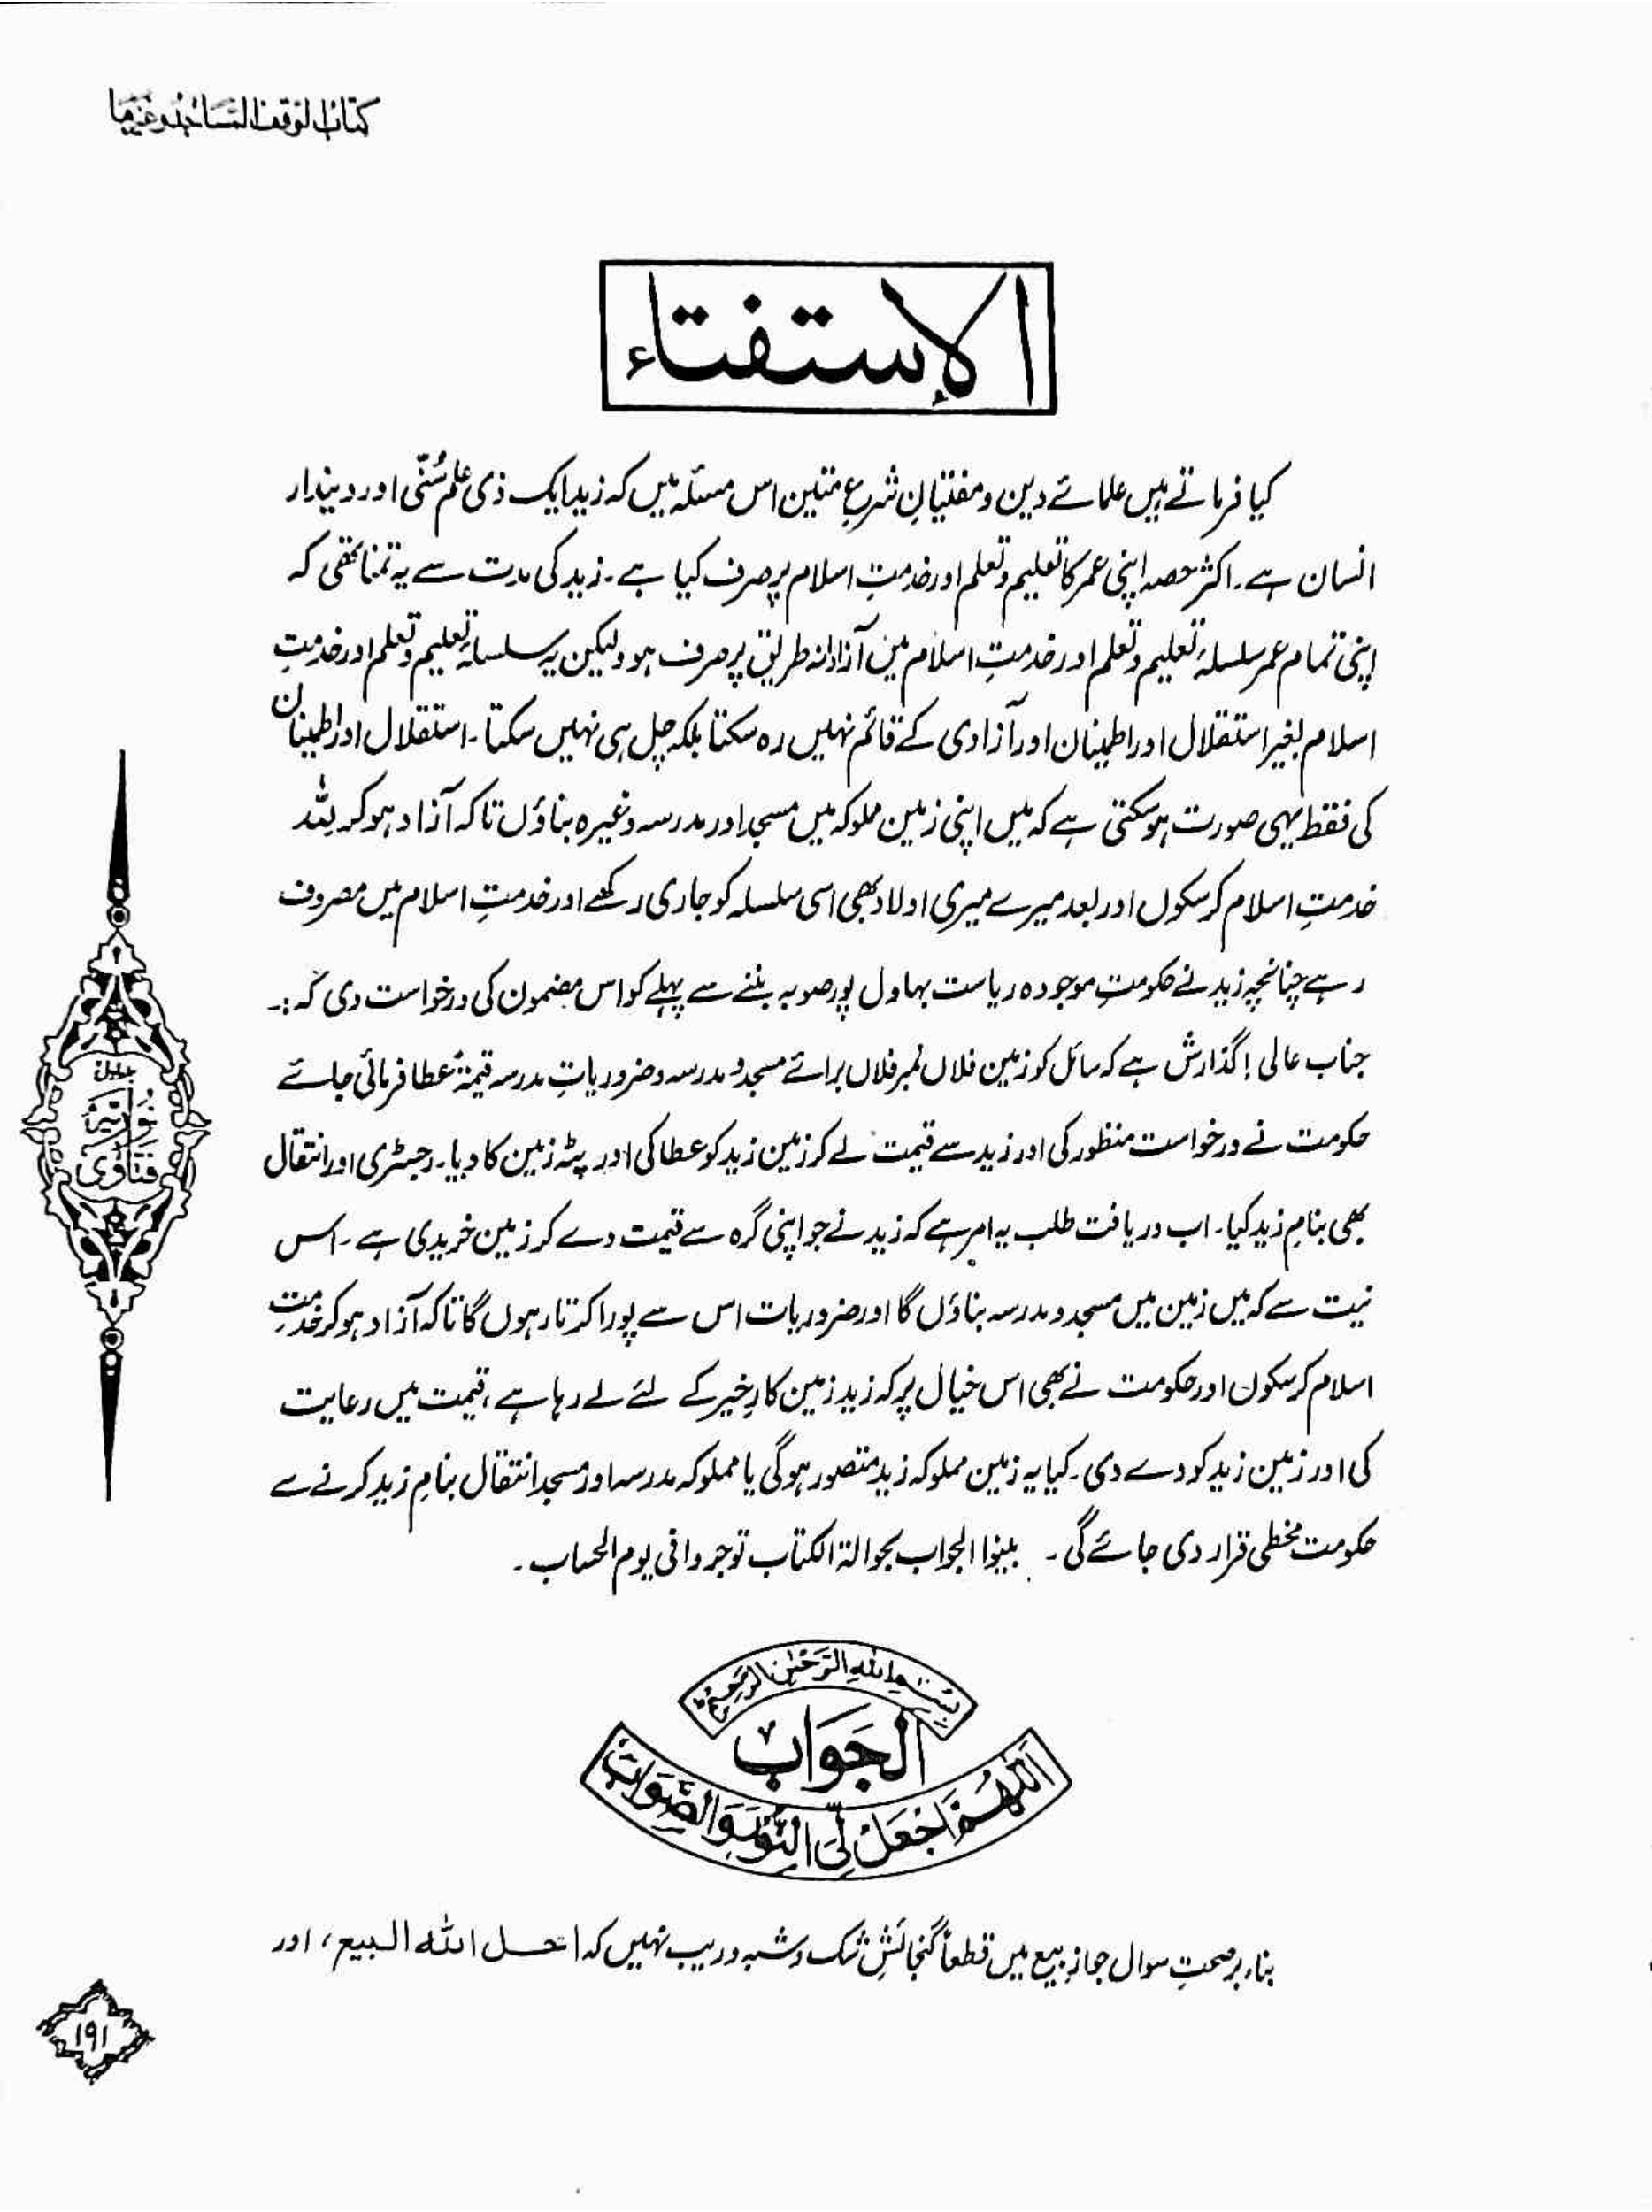 کتاب الوقف المساجد وغیرہا
الإستفتاء
کیا فرماتے ہیں علمائے دین و مفتیانِ شرعِ متین اس مسئلہ میں کہ زید ایک ذی علم سُنّی اور دیندار
انسان ہے۔ اکثر حصہ اپنی عمر کا تعلیم و تعلم اور خدمتِ اسلام پر صرف کیا ہے۔ زید کی مدت سے یہ تمنا تھی کہ
اپنی تمام عمر سلسلہ تعلیم و تعلم اور خدمتِ اسلام میں آزادانہ طریق پر صرف ہو ولیکن یہ سلسلہ تعلیم و تعلم اور خدمتِ
اسلام بغیر استقلال اور اطمینان اور آزادی کے قائم نہیں رہ سکتا بلکہ چل ہی نہیں سکتا۔ استقلال اور اطمینان
کی فقط یہی صورت ہوسکتی ہے کہ میں اپنی زمین مملوکہ میں مسجد اور مدرسہ وغیرہ بناؤں تاکہ آزاد ہو کر للہ
خدمتِ اسلام کر سکوں اور بعد میرے میری اولاد بھی اسی سلسلہ کو جاری رکھے اور خدمتِ اسلام میں مصروف
رہے چنانچہ زید نے حکومتِ موجودہ ریاست بہاول پور صوبہ بننے سے پہلے کو اس مضمون کی درخواست دی کہ :۔
جناب عالی! گذارش ہے کہ سائل کو زمین فلاں نمبر فلاں برائے مسجد و مدرسہ و ضروریاتِ مدرسہ قیمۃً عطا فرمائی جائے
حکومت نے درخواست منظور کی اور زید سے قیمت لے کر زمین زید کو عطا کی اور پٹہ زمین کا دیا۔ رجسٹری اور انتقال
بھی بنامِ زید کیا۔ اب دریافت طلب یہ امر ہے کہ زید نے جو اپنی گرہ سے قیمت دے کر زمین خریدی ہے۔ اس
نیت سے کہ میں زمین میں مسجد و مدرسہ بناؤں گا اور ضروریات اس سے پورا کرتا رہوں گا تاکہ آزاد ہو کر خدمتِ
اسلام کر سکوں اور حکومت نے بھی اس خیال پر کہ زید زمین کارِ خیر کے لئے لے رہا ہے، قیمت میں رعایت
کی اور زمین زید کو دے دی۔ کیا یہ زمین مملوکہ زید متصور ہوگی یا مملوکہ مدرسہ اور مسجد انتقال بنامِ زید کرنے سے
حکومت مخطی قرار دی جائے گی۔ بینوا الجواب بحوالۃ الکتاب توجروا فی یوم الحساب۔
جلد
نُوریّہ
فتاوٰی
بِسْمِ اللهِ الرَّحْمٰنِ الرَّحِيْمِ
الجَوَاب
اَللّٰهُمَّ اجْعَلْ لِّیَ النُّوْرَ وَالصَّوَابَ
بناء بر صحتِ سوال جوازِ بیع میں قطعاً گنجائشِ شک و شبہ و ریب نہیں کہ احل اللہ البیع، اور
۱۹۱